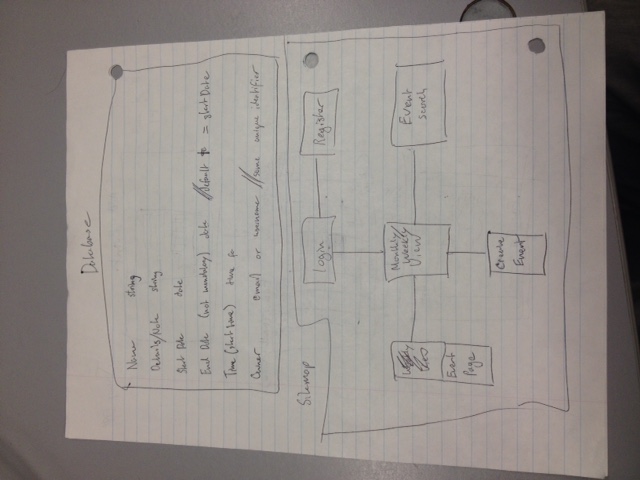 Database
Name string
Details/Note string
Start Date date
End Date (not mandatory) date //default = start Date
Time (start time) time
Owner email or username //some unique identifier
Sitemap
Login
Register
Monthly/
Weekly
View
Event
Search
Event
Page
Create
Event